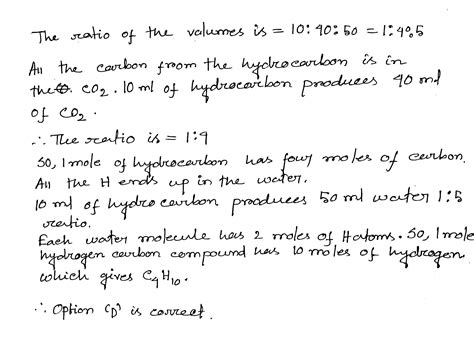 The ratio of the volumes is = 10:40:50 = 1:4:5
All the carbon from the hydrocarbon is in
the CO2. 10 ml of hydrocarbon produces 40 ml
of CO2.
∴ The ratio is = 1:4
So, 1 mole of hydrocarbon has four moles of carbon.
All the H ends up in the water.
10 ml of hydrocarbon produces 50 ml water 1:5
ratio.
Each water molecule has 2 moles of H atoms. So, 1 mole
hydrogen carbon compound has 10 moles of hydrogen
which gives C4H10.
∴ Option (D) is correct.